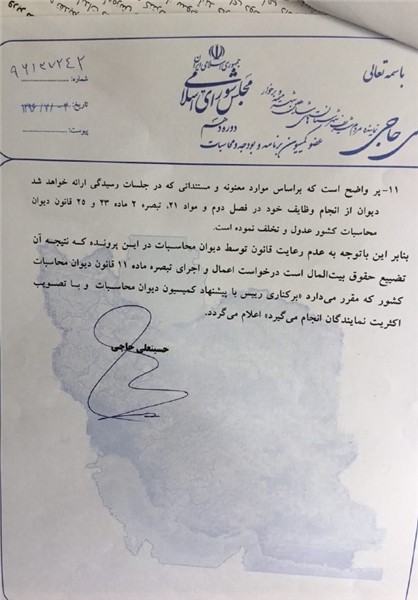 باسمه تعالی
جمهوری اسلامی ایران
مجلس شورای اسلامی
دوره دهم
عضو کمیسیون برنامه و بودجه و محاسبات
حاجی
شماره: ۹۶۱۲۷۲۴۲
تاریخ:
پیوست:
۱۱- پر واضح است که براساس موارد معنونه و مستنداتی که در جلسات رسیدگی ارائه خواهد شد
دیوان از انجام وظایف خود در فصل دوم و مواد ۲۱، تبصره ۲ ماده ۲۳ و ۲۵ قانون دیوان
محاسبات کشور عدول و تخلف نموده است.
بنابر این باتوجه به عدم رعایت قانون توسط دیوان محاسبات در این پرونده که نتیجه آن
تضییع حقوق بیت‌المال است درخواست اعمال و اجرای تبصره ماده ۱۱ قانون دیوان محاسبات
کشور که مقرر می‌دارد «برکناری رییس با پیشنهاد کمیسیون دیوان محاسبات و با تصویب
اکثریت نمایندگان انجام می‌گیرد» اعلام می‌گردد.
حسینعلی حاجی